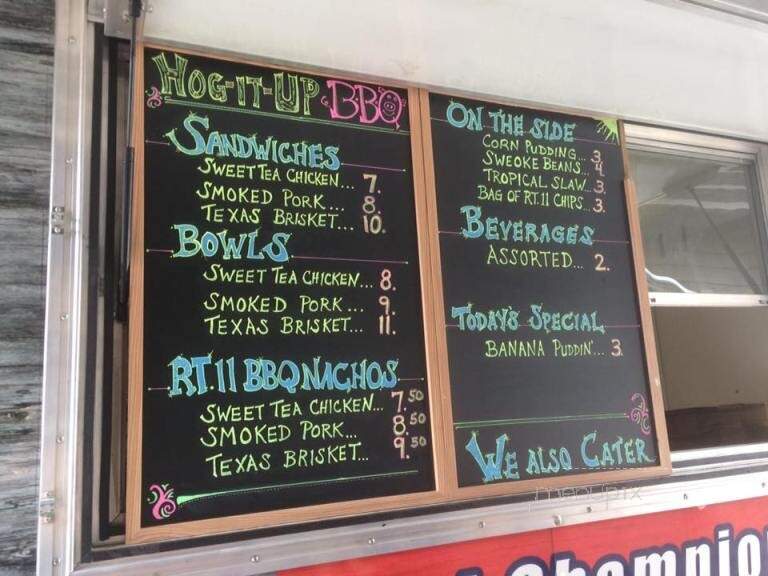 HOG-IT-UP BBQ
SANDWICHES
SWEET TEA CHICKEN... 7.
SMOKED PORK... 8.
TEXAS BRISKET... 10.
BOWLS
SWEET TEA CHICKEN... 8.
SMOKED PORK... 9.
TEXAS BRISKET... 11.
RT. 11 BBQ NACHOS
SWEET TEA CHICKEN... 7.50
SMOKED PORK... 8.50
TEXAS BRISKET... 9.50
ON THE SIDE
CORN PUDDING... 3.
SWEOKE BEANS... 4.
TROPICAL SLAW... 3.
BAG OF RT. 11 CHIPS... 3.
BEVERAGES
ASSORTED... 2.
TODAY'S SPECIAL
BANANA PUDDIN'... 3.
WE ALSO CATER
menupix
Champion